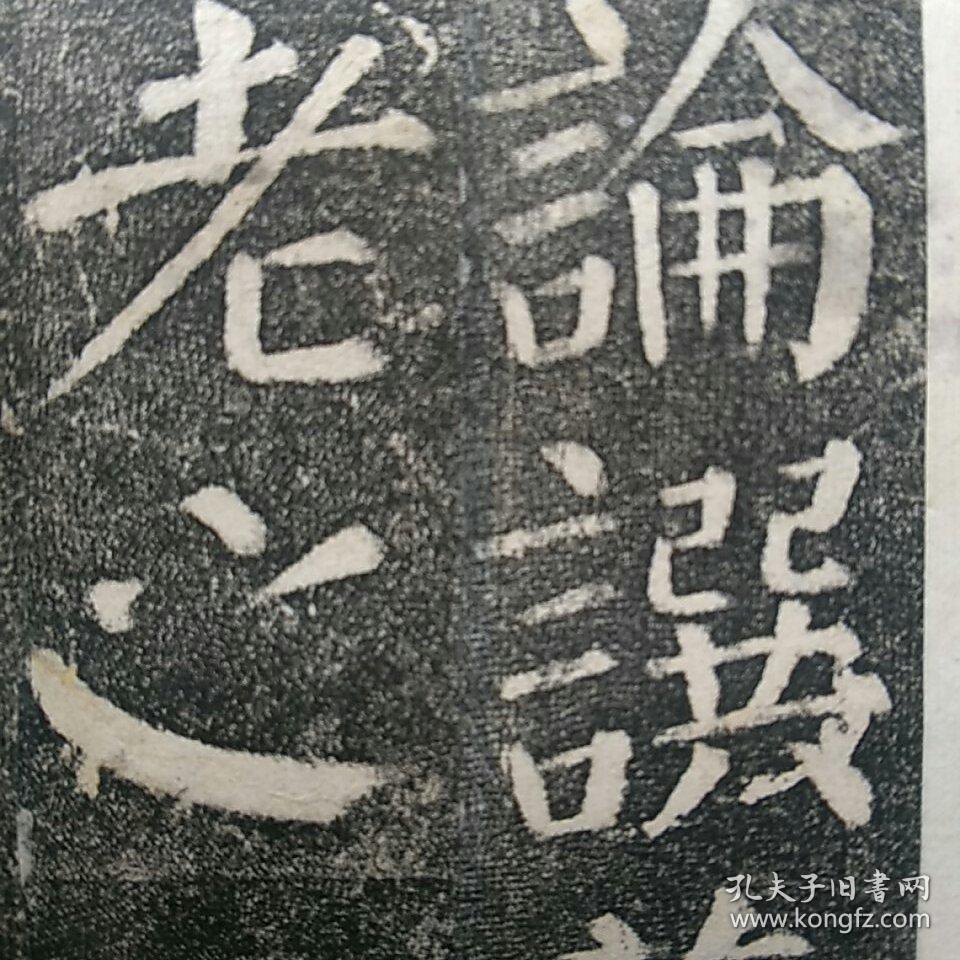 論譔
老之
孔夫子旧書网
www.kongfz.com